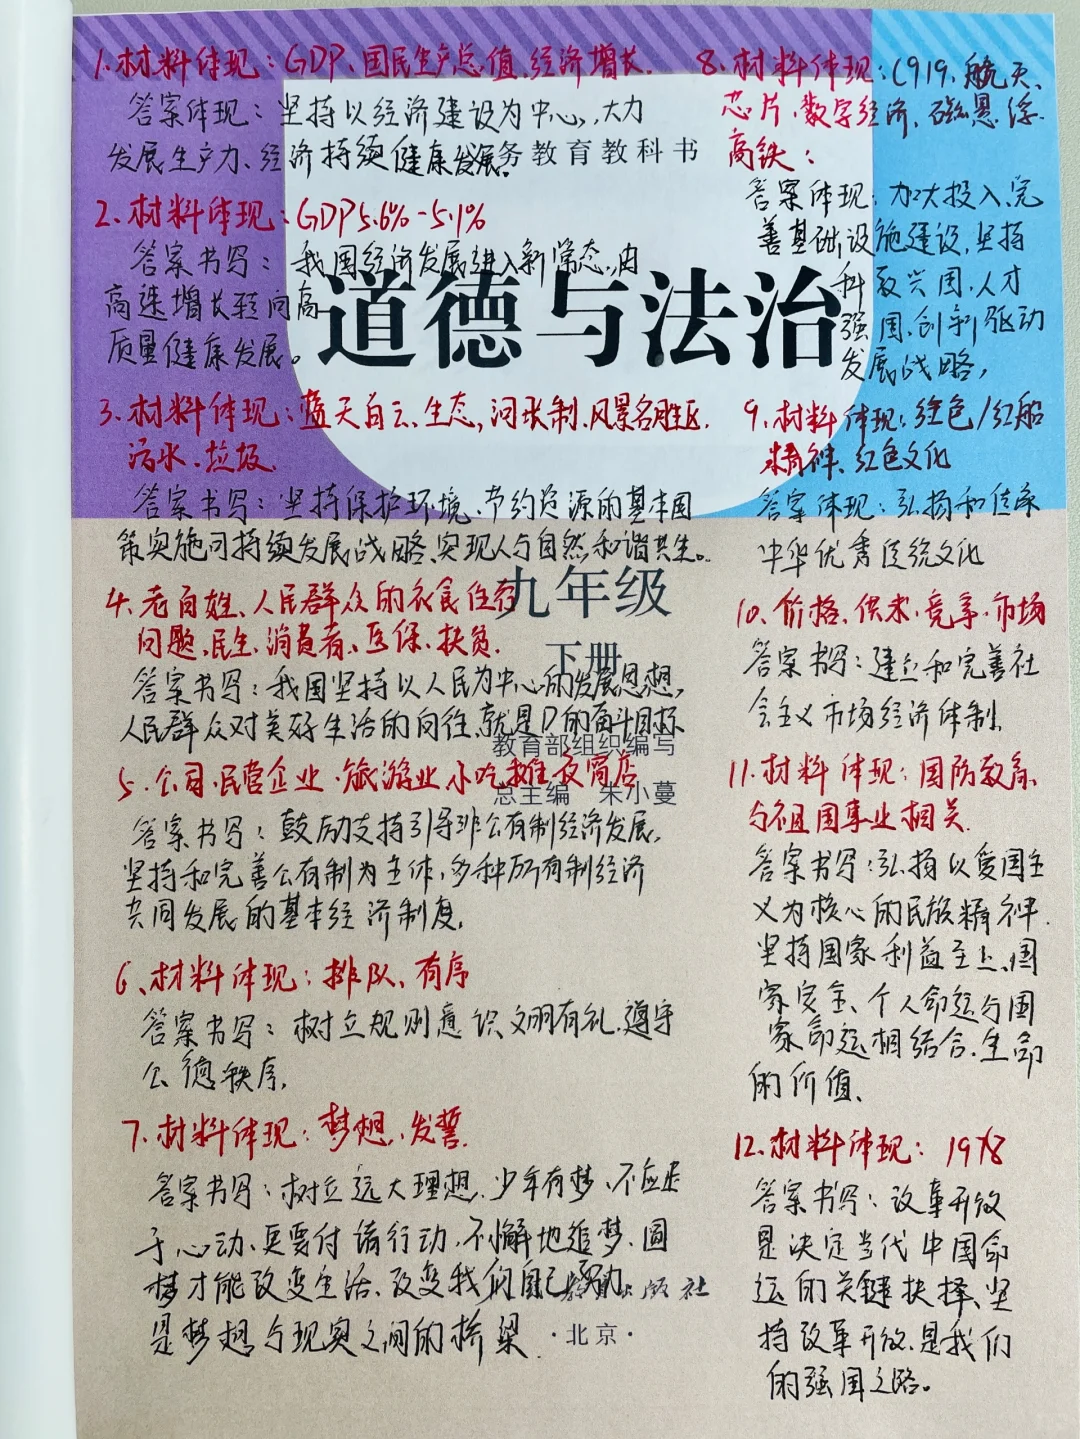 1.材料体现:GDP、国民生产总值、经济增长.
答案体现:坚持以经济建设为中心,大力
发展生产力、经济持续健康发展。
务教育教科书
2.材料体现:GDP5.6%-5.1%
答案书写:我国经济发展进入新常态,由
高速增长转向高
质量健康发展。
道德与法治
3.材料体现:蓝天白云、生态,河长制、风景名胜区.
污水、垃圾.
答案书写:坚持保护环境、节约资源的基本国
策实施可持续发展战略、实现人与自然和谐共生。
九年级
下册
4.老百姓、人民群众的衣食住行
问题、民生、消费者、医保、扶贫.
答案书写:我国坚持以人民为中心的发展思想,
人民群众对美好生活的向往、就是D的奋斗目标
教育部组织编写
总主编 朱小蔓
5.公司、民营企业、旅游业、小吃摊、夜宵店
答案书写:鼓励支持引导非公有制经济发展,
坚持和完善公有制为主体,多种所有制经济
共同发展的基本经济制度.
6、材料体现:排队、有序
答案书写:树立规则意识文明有礼.遵守
公德秩序.
7.材料体现:梦想、发誓.
答案书写:树立远大理想.少年有梦、不应止
于心动、更要付诸行动.不懈地追梦、圆
梦才能改变生活、改变我们自己努力
社
是梦想与现实之间的桥梁.
·北京·
8.材料体现:C919、航天、
芯片、数字经济、磁悬浮.
高铁:
答案体现:加大投入、完
善基础设施建设.坚持
科教兴国、人才
强国、创新驱动
发展战略,
9.材料体现:红色/红船
精神、红色文化
答案体现:弘扬和传承
中华优秀传统文化
10.价格、供求、竞争、市场
答案书写:建立和完善社
会主义市场经济体制.
11.材料体现:国防教育、
与祖国事业相关.
答案书写:弘扬以爱国主
义为核心的民族精神.
坚持国家利益至上、国
家安全、个人命运与国
家命运相结合.生命
的价值、
12.材料体现:1978
答案书写:改革开放
是决定当代中国命
运的关键抉择、坚
持改革开放.是我们
的强国之路。